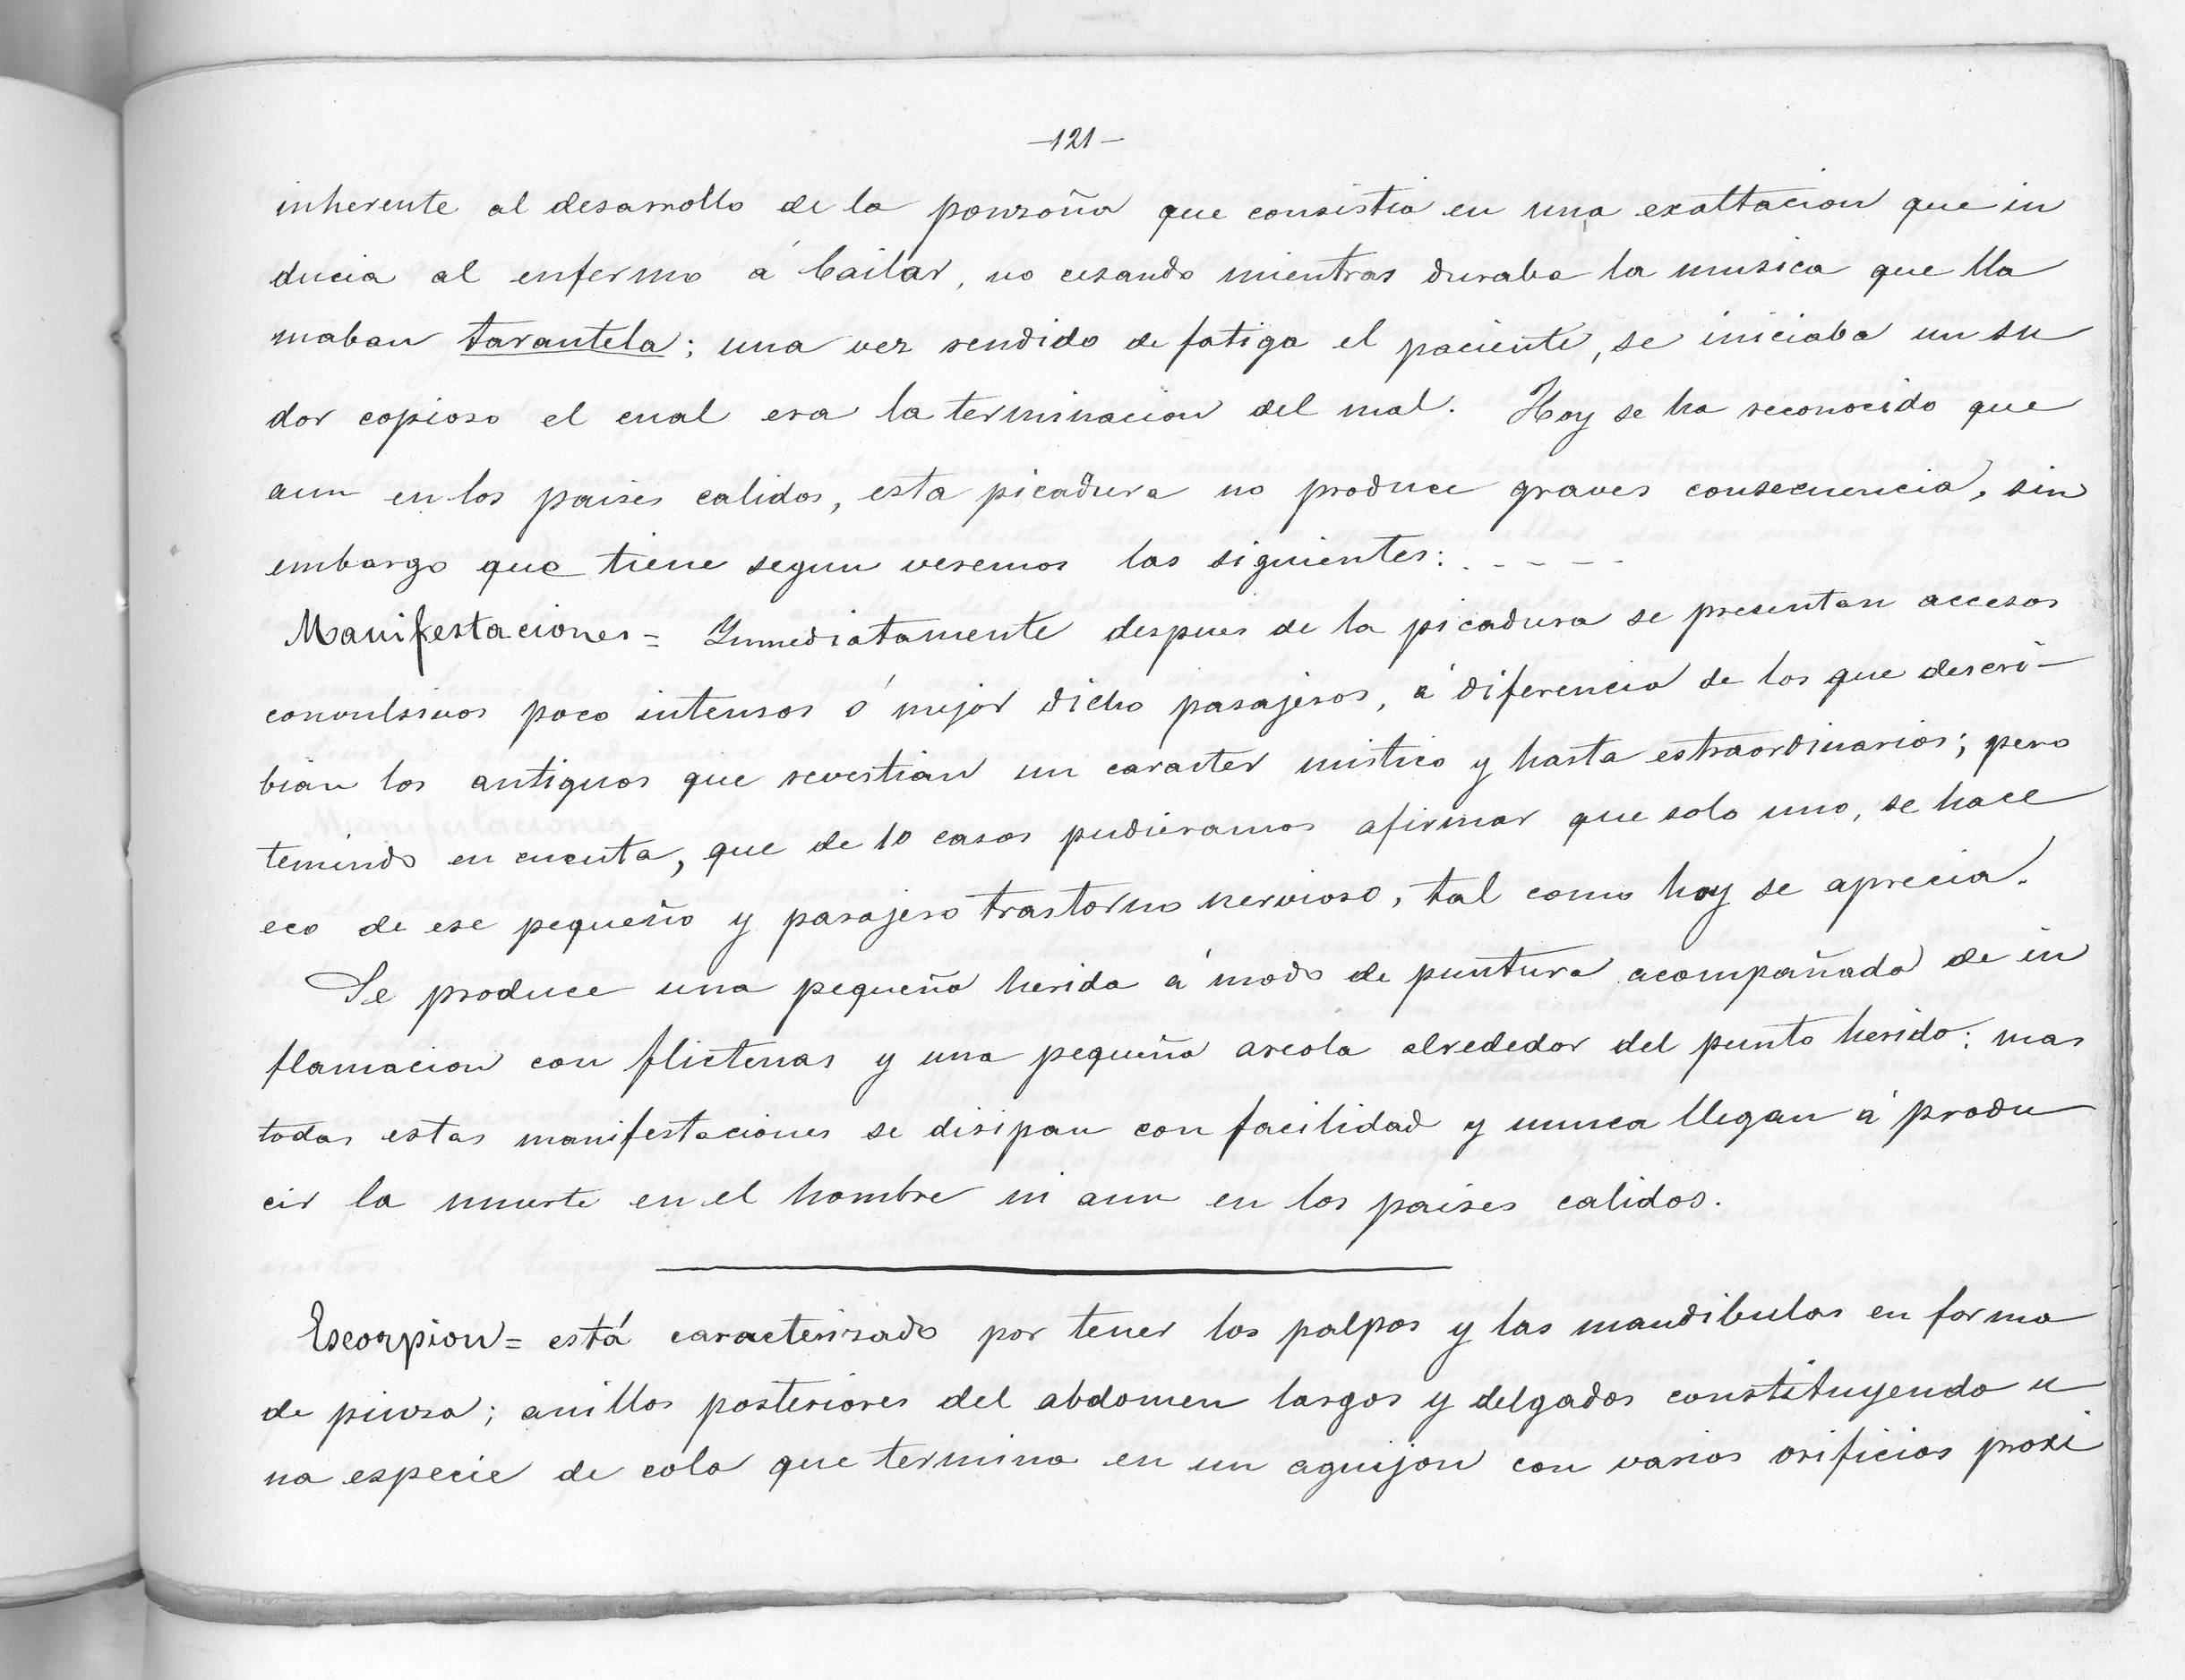 -121-
inherente al desarrollo de la ponzoña que consistia en una exaltacion que in
ducia al enfermo á bailar, no cesando mientras duraba la musica que lla
maban tarantela; una vez rendido de fatiga el paciente, se iniciaba un su
dor copioso el cual era la terminacion del mal. Hoy se ha reconocido que
aun en los paises calidos, esta picadura no produce graves consecuencia, sin
embargo que tiene segun veremos las siguientes: . - - - -
Manifestaciones = Inmediatamente despues de la picadura se presentan accesos
convulsivos poco intensos ó mejor dicho pasajeros, á diferencia de los que descri-
bian los antiguos que revestian un caracter mistico y hasta estraordinarios; pero
teniendo en cuenta, que de 10 casos pudieramos afirmar que solo uno, se hace
eco de ese pequeño y pasajero trastorno nervioso, tal como hoy se aprecia.
Se produce una pequeña herida á modo de puntura acompañada de in
flamacion con flictenas y una pequeña areola alrededor del punto herido: mas
todas estas manifestaciones se disipan con facilidad y nunca llegan á produ
cir la muerte en el hombre ni aun en los paises calidos.
Escorpion = está caracterizado por tener los palpos y las mandibulas en forma
de pinza; anillos posteriores del abdomen largos y delgados constituyendo u
na especie de cola que termina en un aguijon con varios orificios proxi